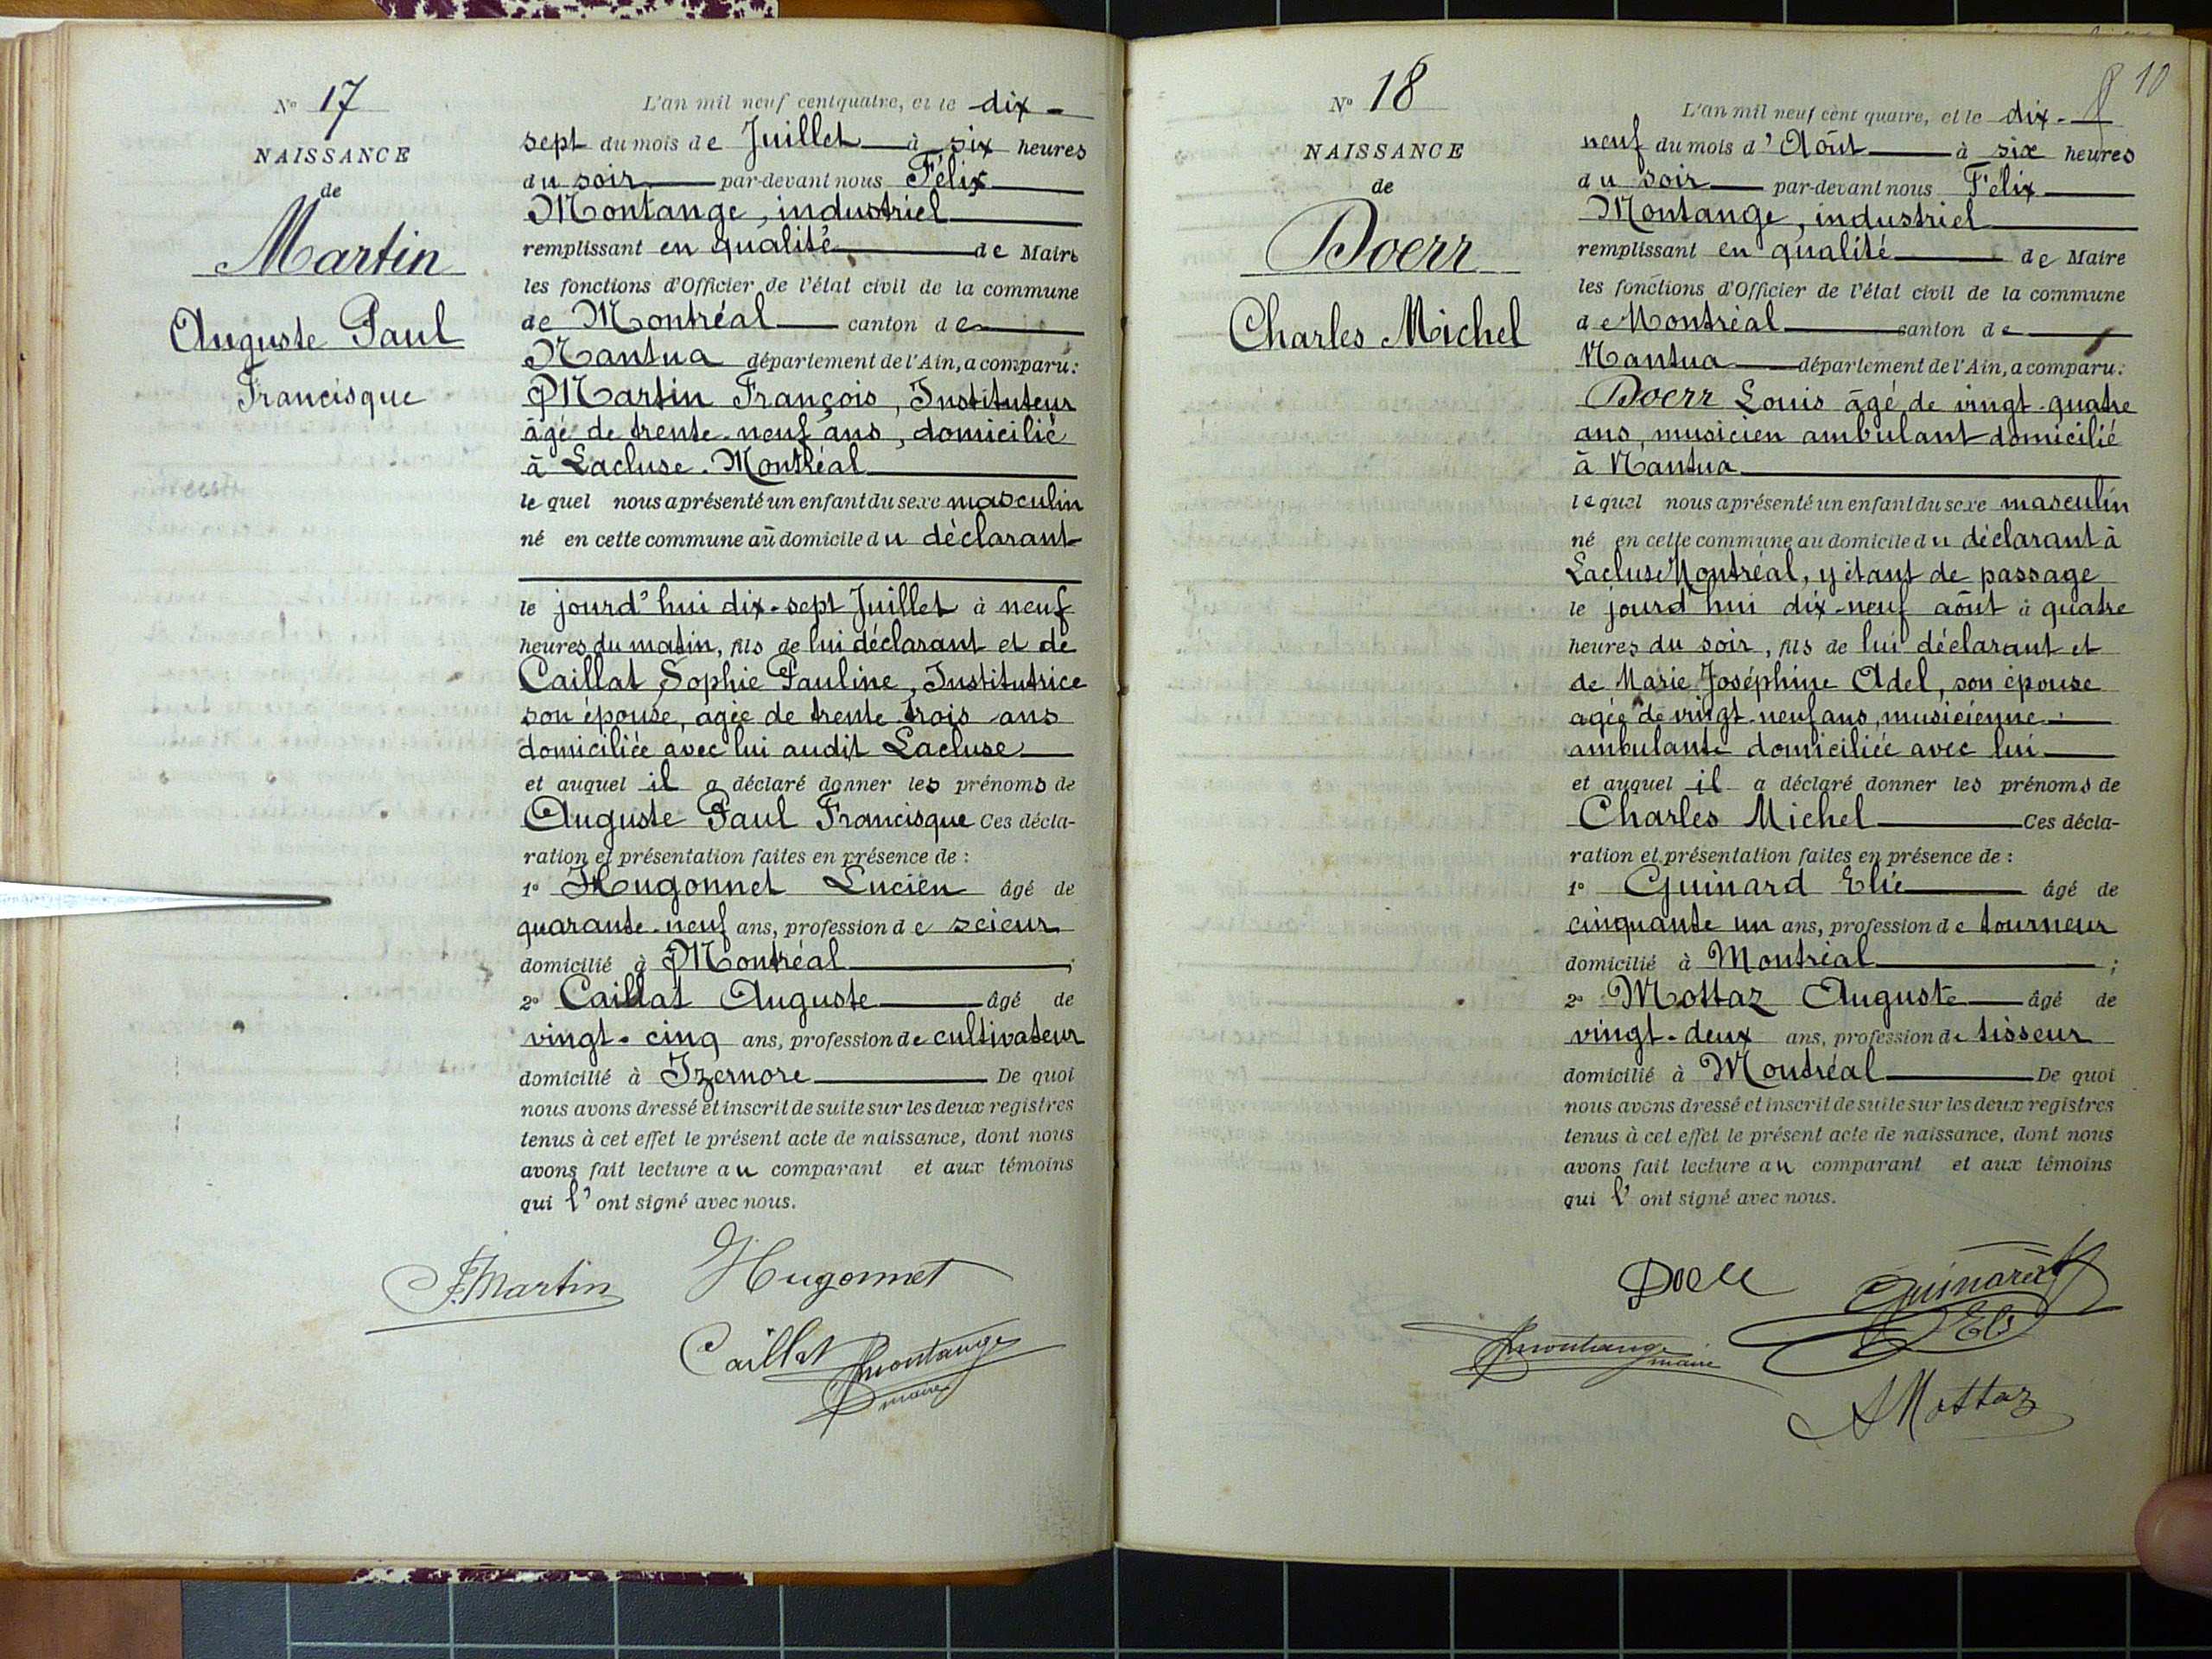 N° 17
NAISSANCE
de
Martin
Auguste Paul
Francisque
L'an mil neuf cent quatre, et le dix-
sept du mois de Juillet à six heures
du soir par-devant nous Félix
Montange, industriel
remplissant en qualité de Maire
les fonctions d'Officier de l'état civil de la commune
de Montréal canton de
Nantua département de l'Ain, a comparu:
Martin François, Instituteur
âgé de trente-neuf ans, domicilié
à Lacluse-Montréal
le quel nous a présenté un enfant du sexe masculin
né en cette commune au domicile du déclarant
le jourd'hui dix-sept Juillet à neuf
heures du matin, fils de lui déclarant et de
Caillat Sophie Pauline, Institutrice
son épouse, âgée de trente trois ans
domiciliée avec lui audit Lacluse
et auquel il a déclaré donner les prénoms de
Auguste Paul Francisque Ces décla-
ration et présentation faites en présence de :
1° Hugonnet Lucien âgé de
quarante-neuf ans, profession de scieur
domicilié à Montréal ;
2° Caillat Auguste âgé de
vingt-cinq ans, profession de cultivateur
domicilié à Izernore De quoi
nous avons dressé et inscrit de suite sur les deux registres
tenus à cet effet le présent acte de naissance, dont nous
avons fait lecture au comparant et aux témoins
qui l'ont signé avec nous.
F. Martin Hugonnet
Caillat Fmontange
maire
10
N° 18
NAISSANCE
de
Doerr
Charles Michel
L'an mil neuf cent quatre, et le dix-
neuf du mois d'Août à six heures
du soir par-devant nous Félix
Montange, industriel
remplissant en qualité de Maire
les fonctions d'Officier de l'état civil de la commune
de Montréal canton de
Nantua département de l'Ain, a comparu:
Doerr Louis âgé de vingt-quatre
ans, musicien ambulant domicilié
à Nantua
le quel nous a présenté un enfant du sexe masculin
né en cette commune au domicile du déclarant à
Lacluse Montréal, y étant de passage
le jourd'hui dix-neuf août à quatre
heures du soir, fils de lui déclarant et
de Marie Joséphine Adel, son épouse
agée de vingt-neuf ans, musicienne
ambulante domiciliée avec lui
et auquel il a déclaré donner les prénoms de
Charles Michel Ces décla-
ration et présentation faites en présence de :
1° Guinard Elie âgé de
cinquante un ans, profession de tourneur
domicilié à Montréal ;
2° Mottaz Auguste âgé de
vingt-deux ans, profession de tisseur
domicilié à Montréal De quoi
nous avons dressé et inscrit de suite sur les deux registres
tenus à cet effet le présent acte de naissance, dont nous
avons fait lecture au comparant et aux témoins
qui l'ont signé avec nous.
Guinard
Elie
Fmontange
maire
A Mottaz